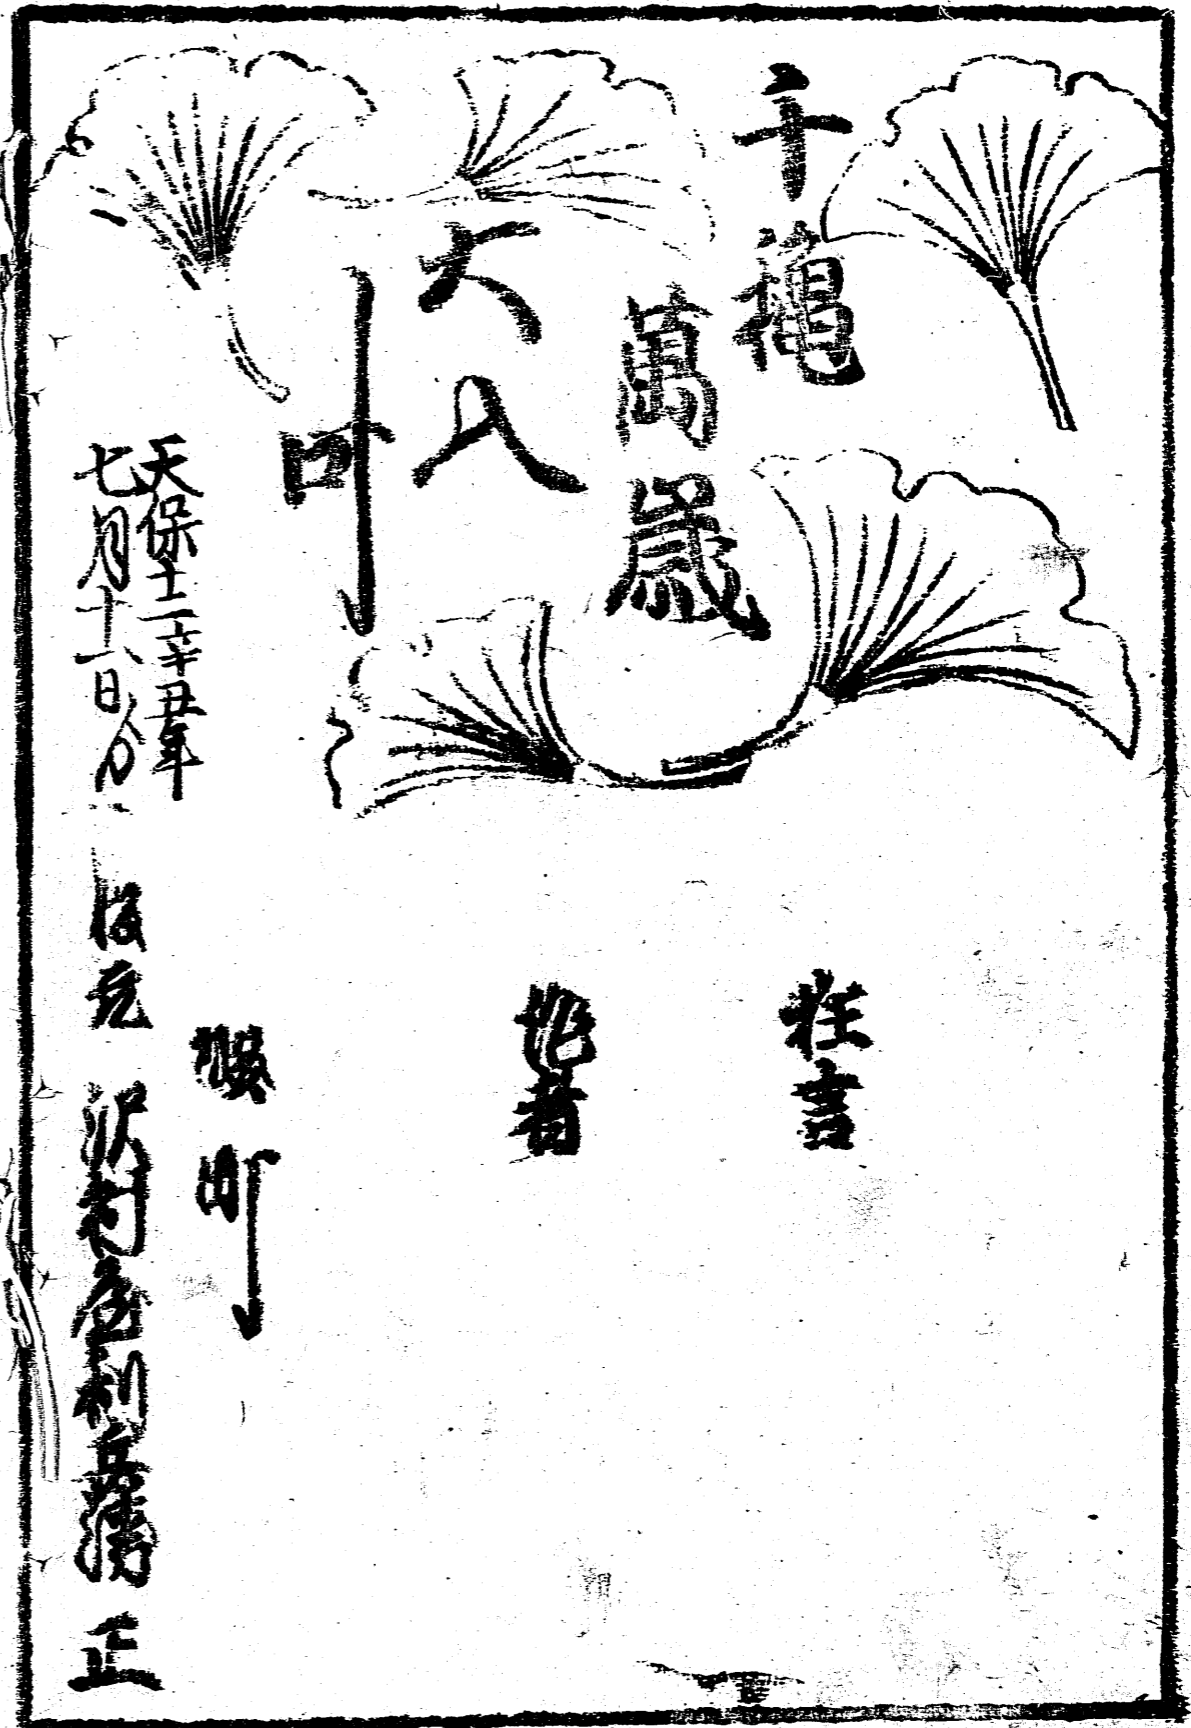 千穐
萬歳
大入
叶
狂言
作者
天保十二辛丑年
七月十六日
板元 沢村屋利兵衛 正